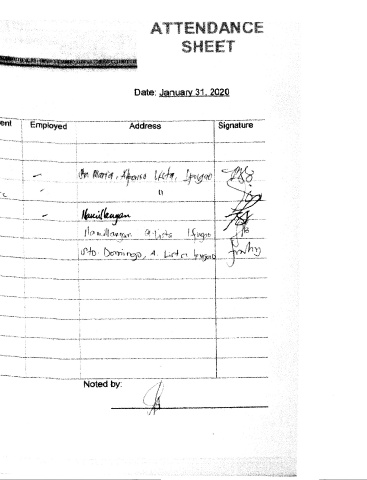 ATTENDANCE
SHEET
Date: January 31, 2020
ent Employed Address Signature
Sta. Maria, Alfonso Lista, Ifugao
"
Namillangan
Namillangan A. Lista Ifugao
Sto. Domingo, A. Lista, Ifugao
Noted by: